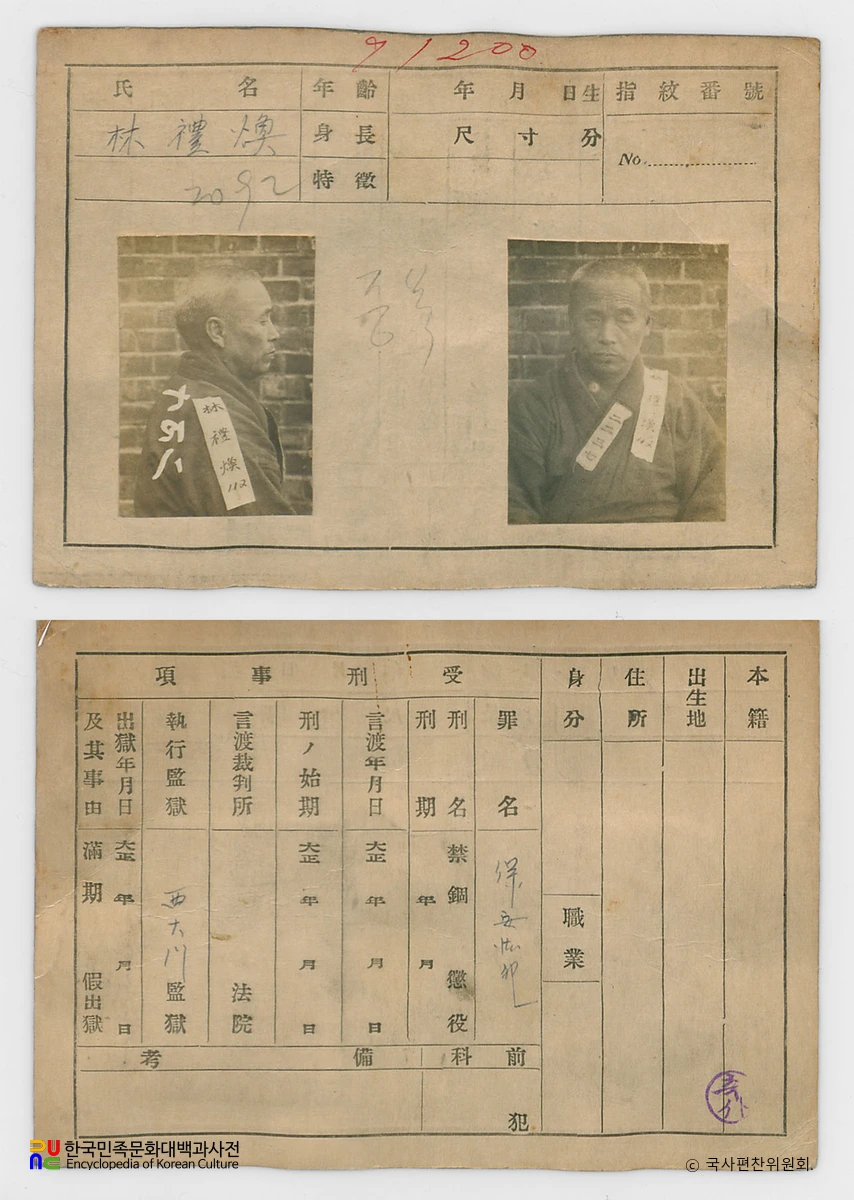 91200
氏名
年齡
年月日生
指紋番號
林禮煥
身長
尺寸分
No.
2092
特徵
林禮煥 112
林禮煥 112
受刑事項
身分
住所
出生地
本籍
罪名
刑名
刑期
言渡年月日
刑ノ始期
言渡裁判所
執行監獄
出獄年月日
及其事由
保安法犯
禁錮 懲役
年 月
大正 年 月 日
大正 年 月 日
法院
西大门監獄
大正 年 月 日
滿期 假出獄
職業
前科
犯
備考
한국민족문화대백과사전
Encyclopedia of Korean Culture
© 국사편찬위원회.